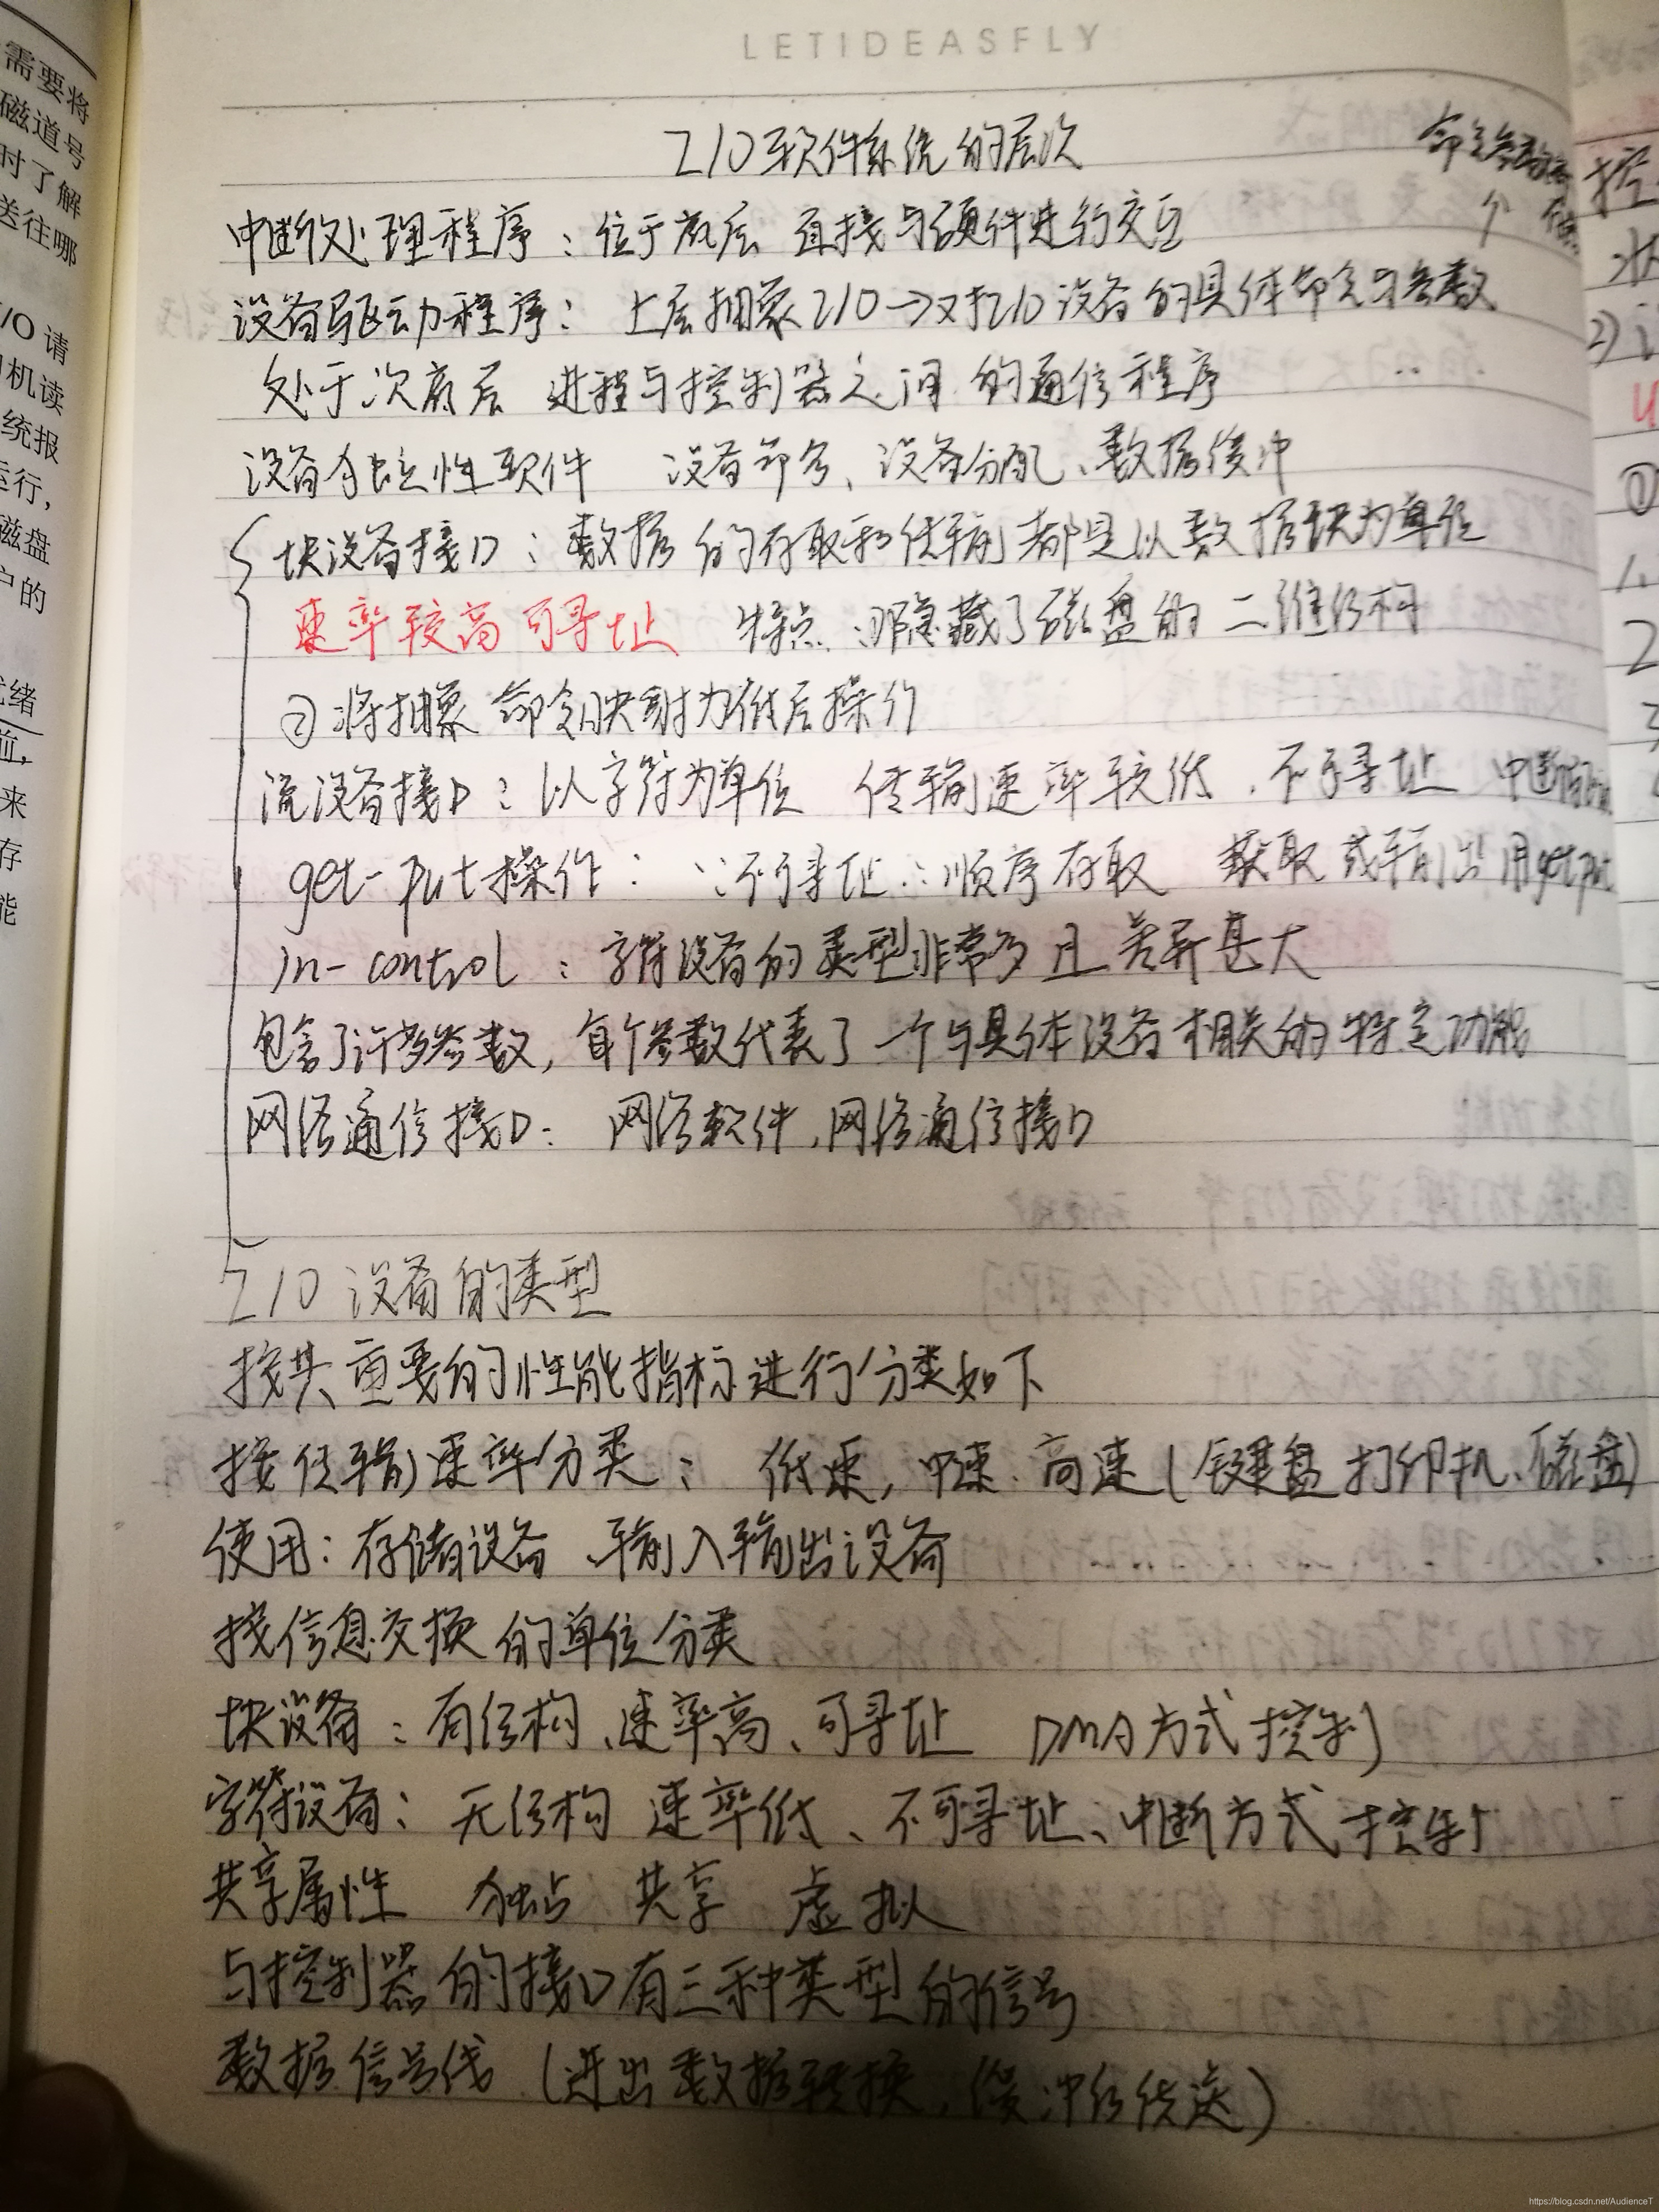 需要将
磁道号
时了解
送往哪
I/O 请
机读
统报
运行,
磁盘
户的
绪
来
存
能
LETIDEASFLY
I/O软件系统的层次
中断处理程序：位于底层 直接与硬件进行交互
设备驱动程序：上层抽象I/O→对I/O设备的具体命令与参数
处于次底层 进程与控制器之间的通信程序
设备独立性软件 设备命名、设备分配、数据缓冲
块设备接口：数据的存取和传输都是以数据块为单位
速率较高 可寻址 特点：隐藏了磁盘的二维结构
②将抽象命令映射为低层操作
流设备接口：以字符为单位 传输速率较低、不可寻址 中断
get-put操作：∵不可寻址∴顺序存取 获取或输出用get put
in-control：字符设备的类型非常多且差异甚大
包含了许多参数，每个参数代表了一个与具体设备相关的特定功能
网络通信接口：网络软件、网络通信接口
I/O 设备的类型
按其重要的性能指标进行分类如下
按传输速率分类：低速，中速、高速（键盘 打印机、磁盘）
使用：存储设备、输入输出设备
按信息交换的单位分类
块设备：有结构、速率高、可寻址 DMA方式控制
字符设备：无结构 速率低、不可寻址、中断方式控制
共享属性 独占 共享 虚拟
与控制器的接口有三种类型的信号
数据信号线（进出数据转换，缓冲后传送）
控
状
2)
①
1.
2
https://blog.csdn.net/AudienceT